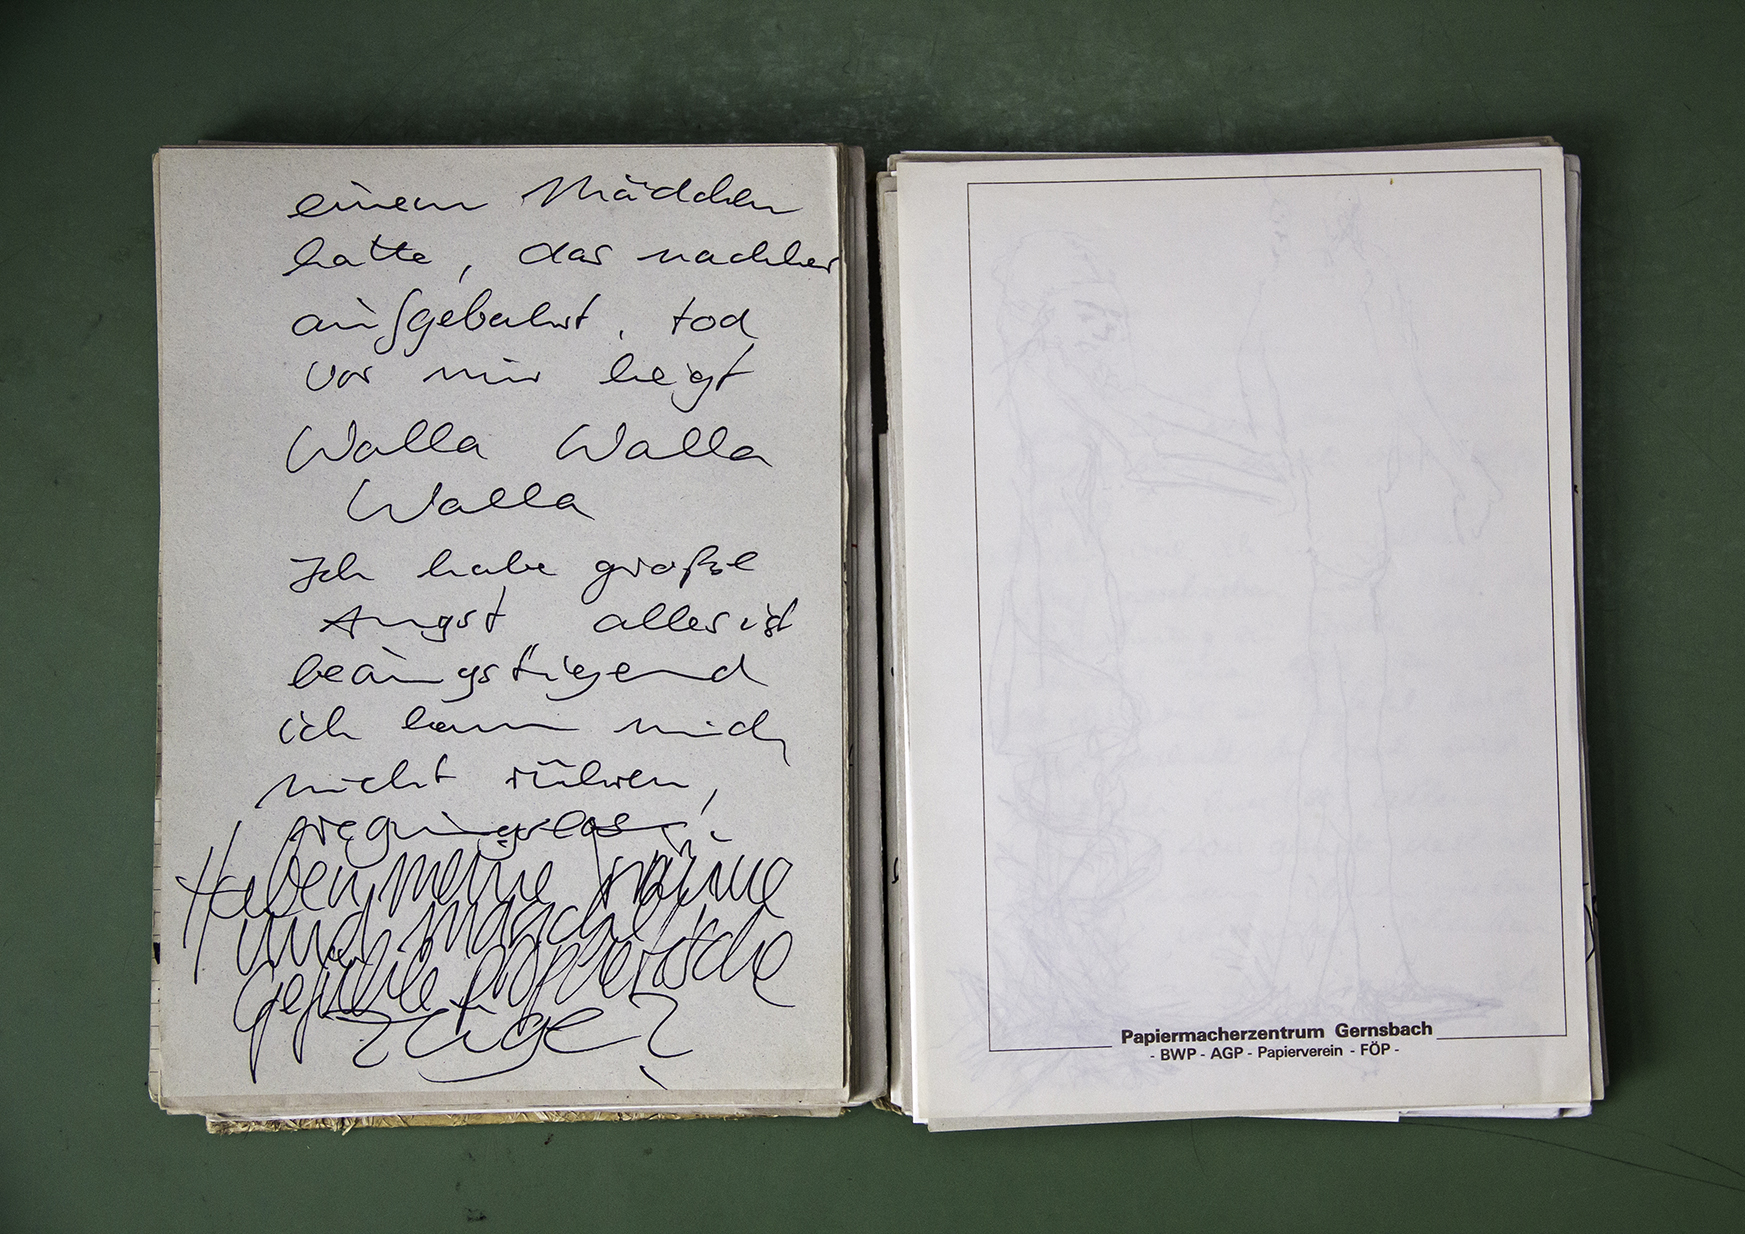 einem Mädchen
hatte, das nachher
aufgebahrt, tod
vor mir liegt
Walla Walla
Walla
Ich habe große
Angst alles ist
beängstigend
ich kann mich
nicht rühren,
regungslos,
Haben meine Träume
und manche
Gefühle prophetische
Züge?
Papiermacherzentrum Gernsbach
- BWP - AGP - Papierverein - FÖP -